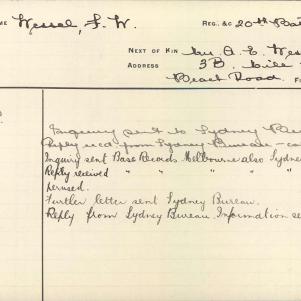 ME Wessel, F. W. REG. &C 20th Bat
NEXT OF KIN Mrs. A. E. Wes
ADDRESS 3B.
Beach Road. F
Inquiry sent to Sydney Bu
Reply recd from Sydney Bureau -
Inquiry sent Base Records Melbourne also Sydney
Reply received " " " "
perused.
Further letter sent Sydney Bureau.
Reply from Sydney Bureau. Information se